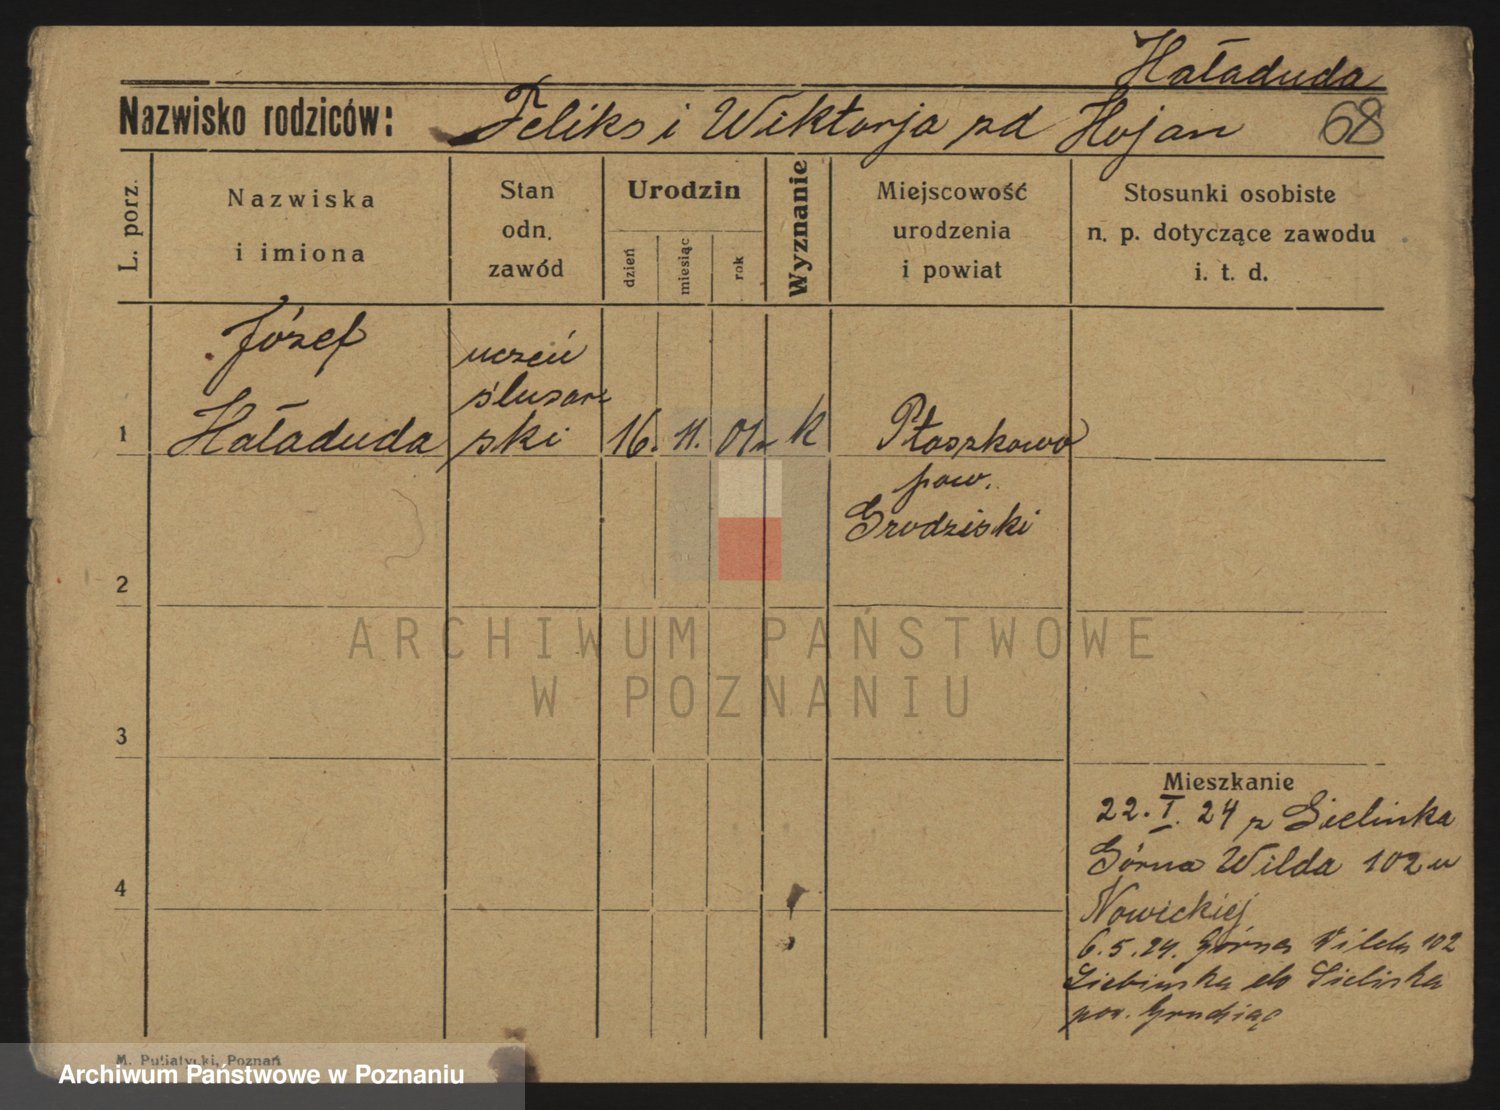 Haładuda
Nazwisko rodziców: Feliks i Wiktorja zd Hojan 68
L. porz.
Nazwiska
i imiona
Stan
odn.
zawód
Urodzin
dzień
miesiąc
rok
Wyznanie
Miejscowość
urodzenia
i powiat
Stosunki osobiste
n. p. dotyczące zawodu
i. t. d.
Józef
uczeń
ślusar-
1 Haładuda ski 16. 11. 01 r K Ptaszkowo
pow.
Grodziski
2
ARCHIWUM PAŃSTWOWE
W POZNANIU
3
Mieszkanie
22. I. 24 z Sielinka
Górna Wilda 102 u
4
Nowickiej
6. 5. 24. Górna Wilda 102
do Sielinka
pow.
M. Putiatycki, Poznań
Archiwum Państwowe w Poznaniu